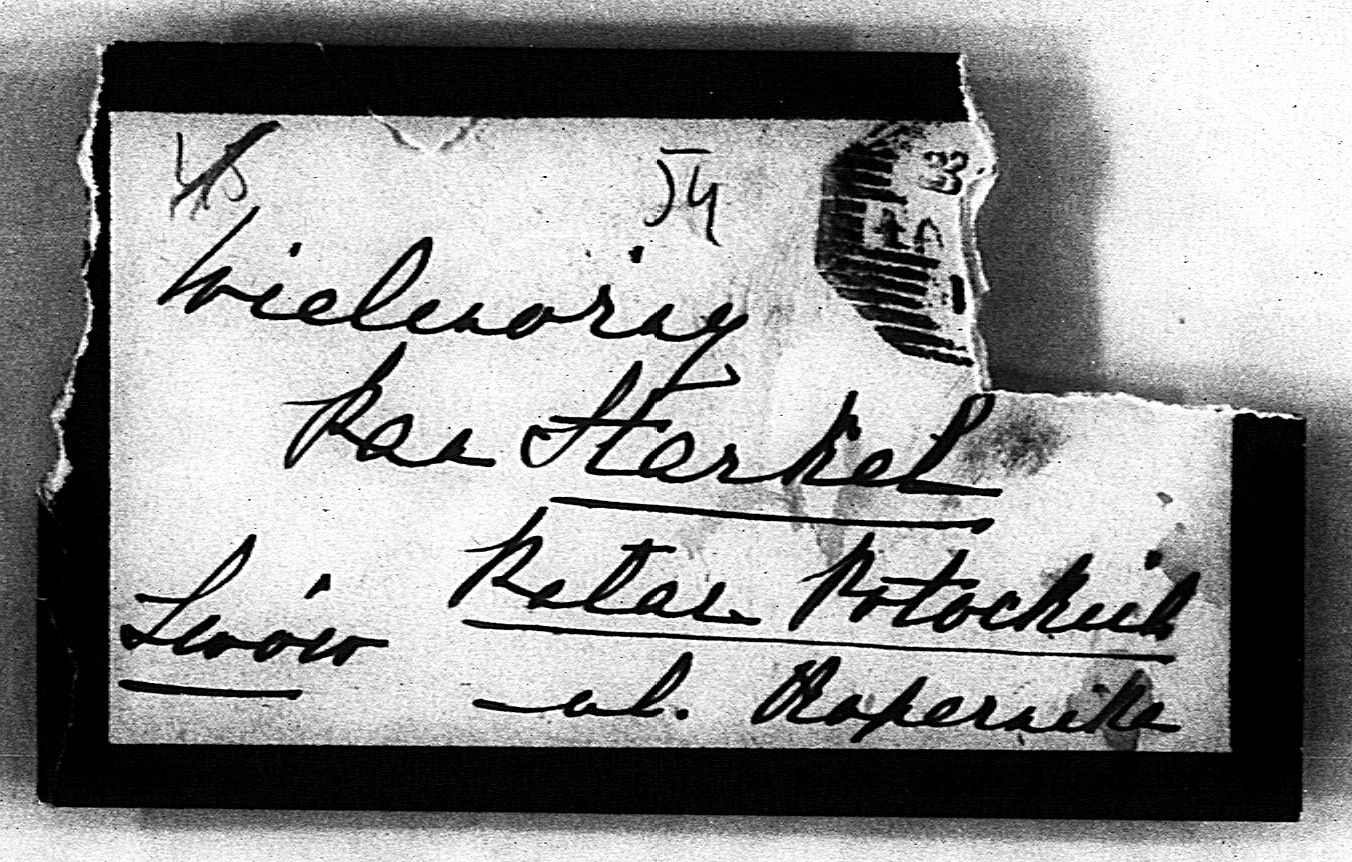 54
Wielmożny
Pan Starkel
Pałac Potockich
Lwów
ul. Kopernika